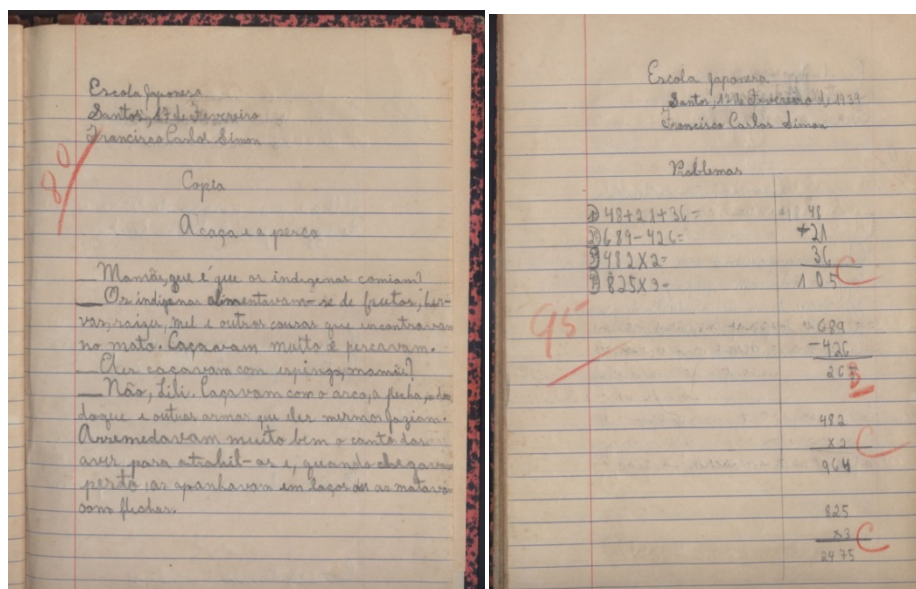 Escola Japonesa
Santos, 17 de Fevereiro
Francisco Carlos Simon
80
Copia
A caça e a pesca
— Mamãe, que é que os indigenas comiam?
— Os indigenas alimentavam-se de frutos, her-
vas, raizes, mel e outros cousas que encontravam
no mato. Caçavam muito e pescavam.
— Eles caçavam com espinga, mamãe?
— Não, Lili. Caçavam com o arco, a flecha,
e outras armas que eles mesmos faziam.
Arremedavam muito bem o canto das
aves para atrahil-as e, quando chegavam
perto as apanhavam em laços as matavam
com flechas.
Escola Japonesa
Santos, 17 de Fevereiro de 1939
Francisco Carlos Simon
Problemas
1) 48+21+36=
2) 689-426=
3) 482X2=
4) 825X3=
95
48
+21
36
105 C
689
-426
26
482
X2 C
964
825
X3 C
2475